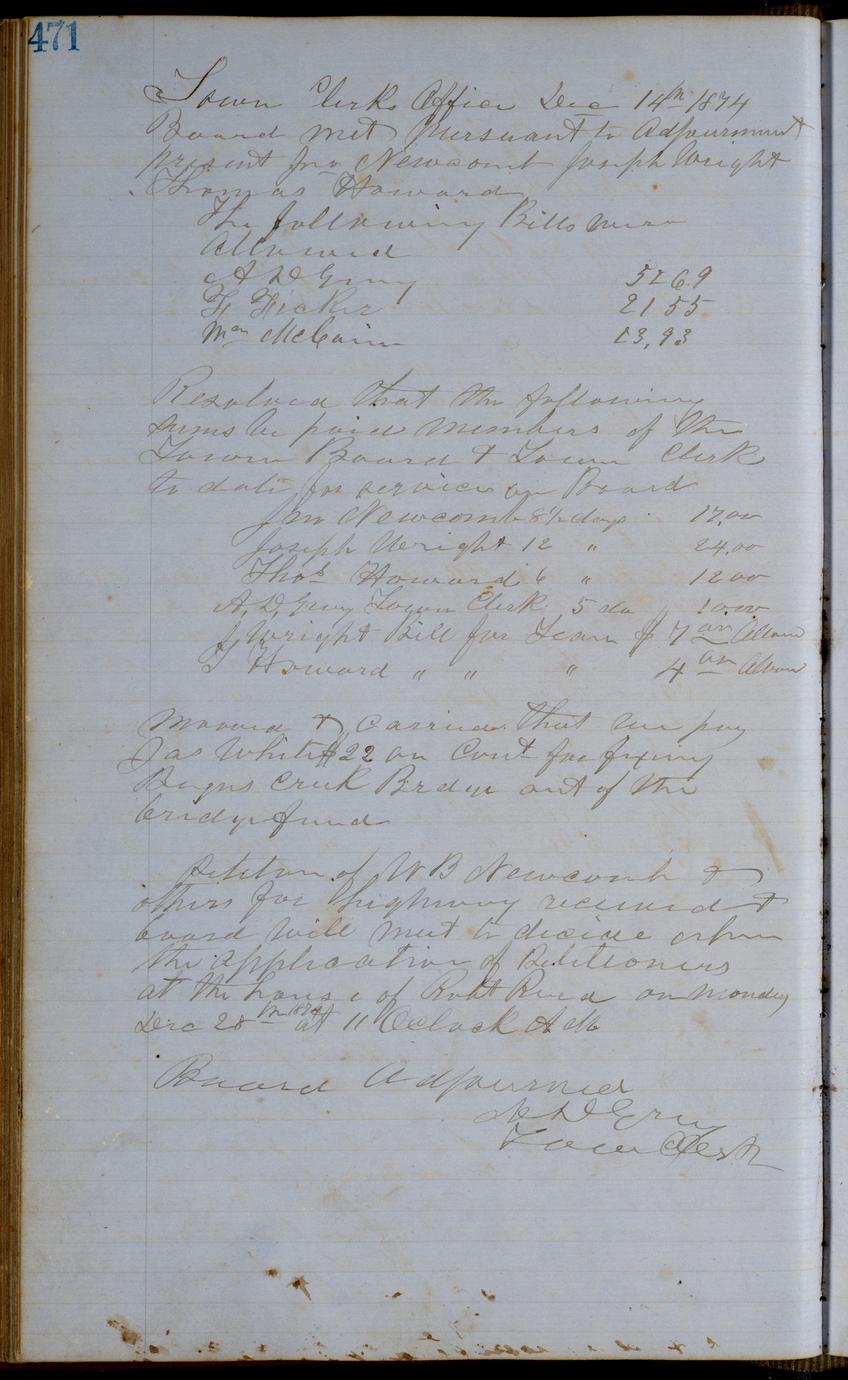 471
Town Clerks Office Dec 14th 1874
Board met pursuant to Adjournment
present Jno Newcomb Joseph Wright
Thomas Howard
The following Bills were
Allowed
A D Gray
21 55
Wm McCain 13,93
Resolved that the following
sums be paid members of the
Town Board & Town Clerk
to date for services on Board
Jno Newcomb 8½ days 17,00
Joseph Wright 12 " 24,00
Thos Howard 6 " 12 00
A. D. Gray Town Clerk 5 do " 10 00
J Wright Bill for Team $ 7 00 Allowd
T Howard " " " 4 00 Allowd
Mooved & Carried that we pay
Jas White $22 on Cont for fixing
Creek Bridge out of the
bridge fund
Petition of W B Newcomb &
others for highway received &
board will meet to decide upon
the application of Petitioners
at the house of Robt Reed on Monday
Dec 28th 1874 at 11 Oclock A M
Board Adjourned
A D Gray
Town Clerk